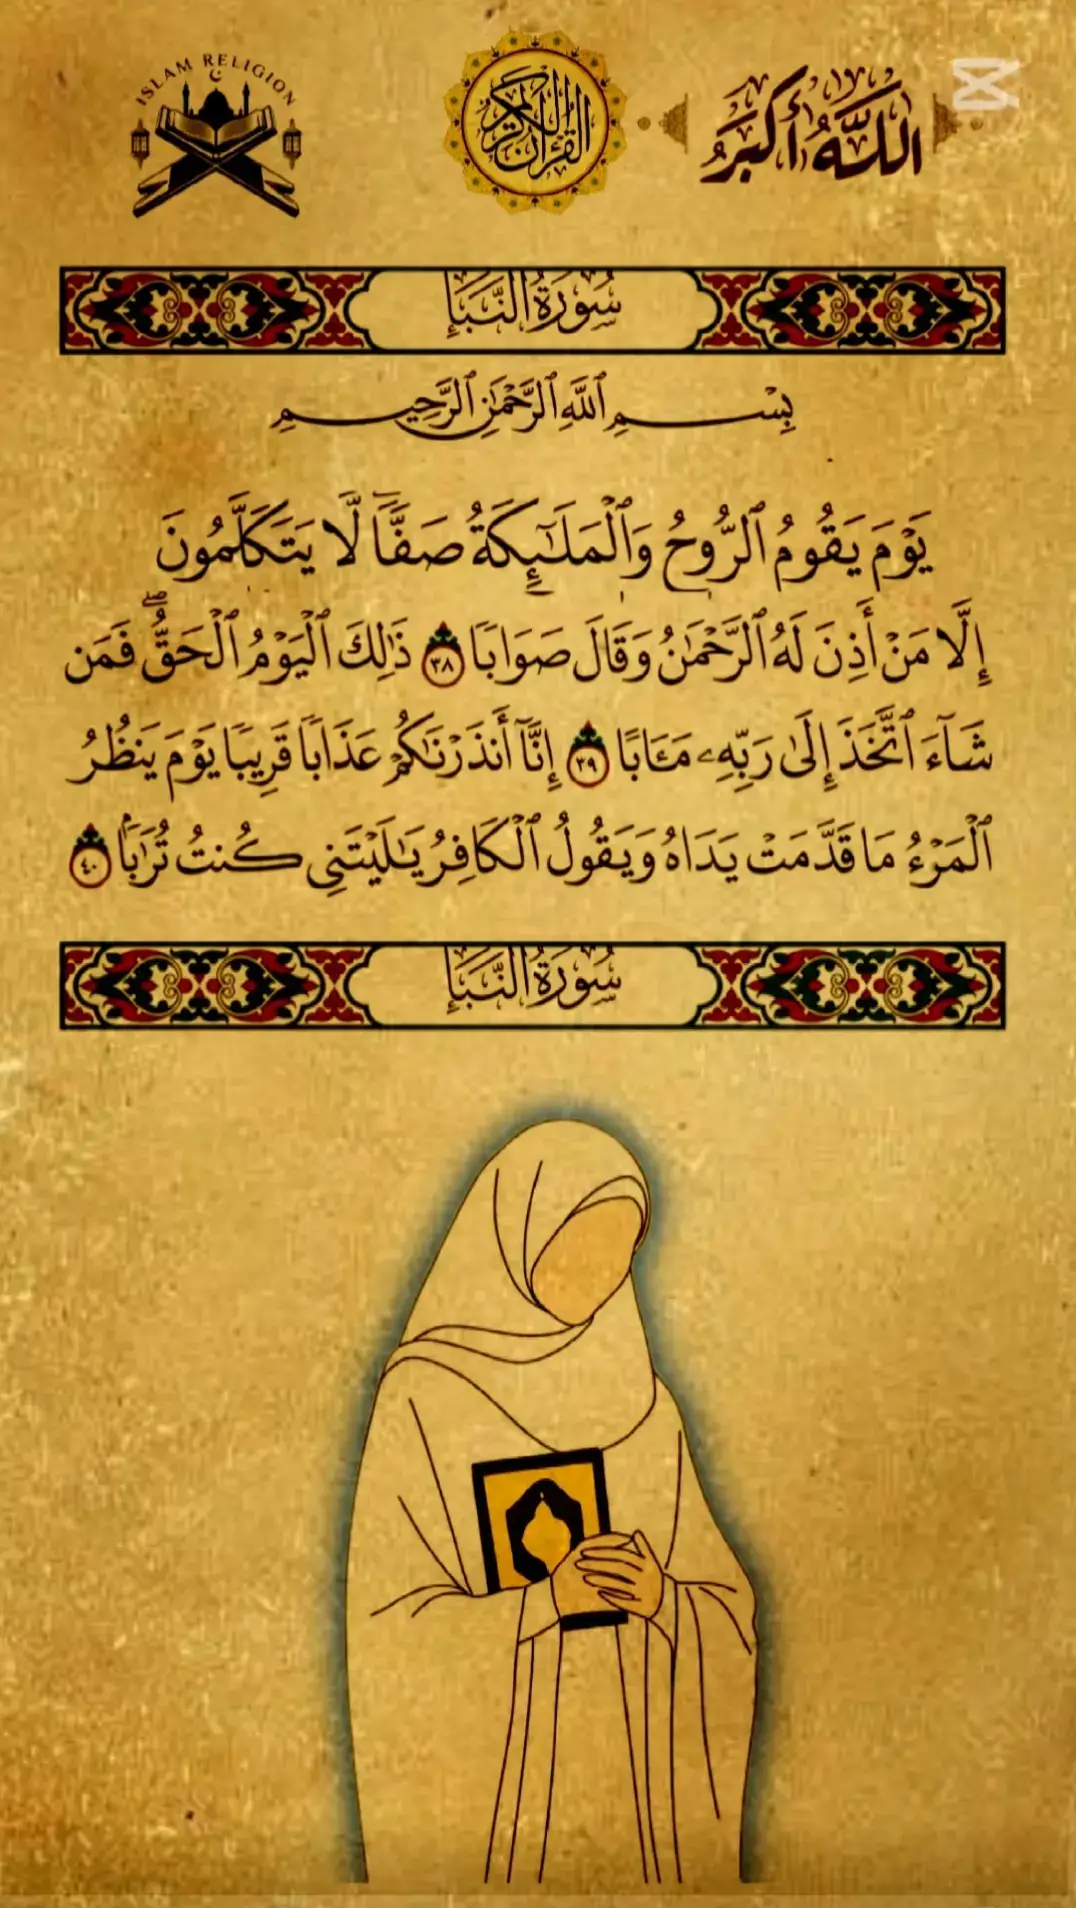 ISLAM RELIGION
القرآن الكريم
اللَّهُ أَكْبَرُ
سُورَةُ النَّبَإِ
بِسْمِ ٱللَّهِ ٱلرَّحْمَٰنِ ٱلرَّحِيمِ
يَوْمَ يَقُومُ ٱلرُّوحُ وَٱلْمَلَٰٓئِكَةُ صَفًّۭا ۖ لَّا يَتَكَلَّمُونَ
إِلَّا مَنْ أَذِنَ لَهُ ٱلرَّحْمَٰنُ وَقَالَ صَوَابًا ٣٨ ذَٰلِكَ ٱلْيَوْمُ ٱلْحَقُّ ۖ فَمَن
شَآءَ ٱتَّخَذَ إِلَىٰ رَبِّهِۦ مَـَٔابًا ٣٩ إِنَّآ أَنذَرْنَٰكُمْ عَذَابًا قَرِيبًا يَوْمَ يَنظُرُ
ٱلْمَرْءُ مَا قَدَّمَتْ يَدَاهُ وَيَقُولُ ٱلْكَافِرُ يَٰلَيْتَنِى كُنتُ تُرَٰبًۢا ٤٠
سُورَةُ النَّبَإِ